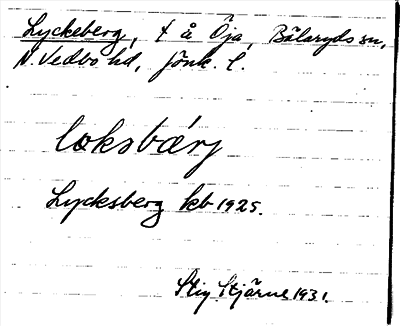 Lyckeberg, t å Öja, Bälaryds sn,
N. Vedbo hd, Jönk. l.
loksbærj
Lycksberg kb 1925.
Stig Stjärne 1931.